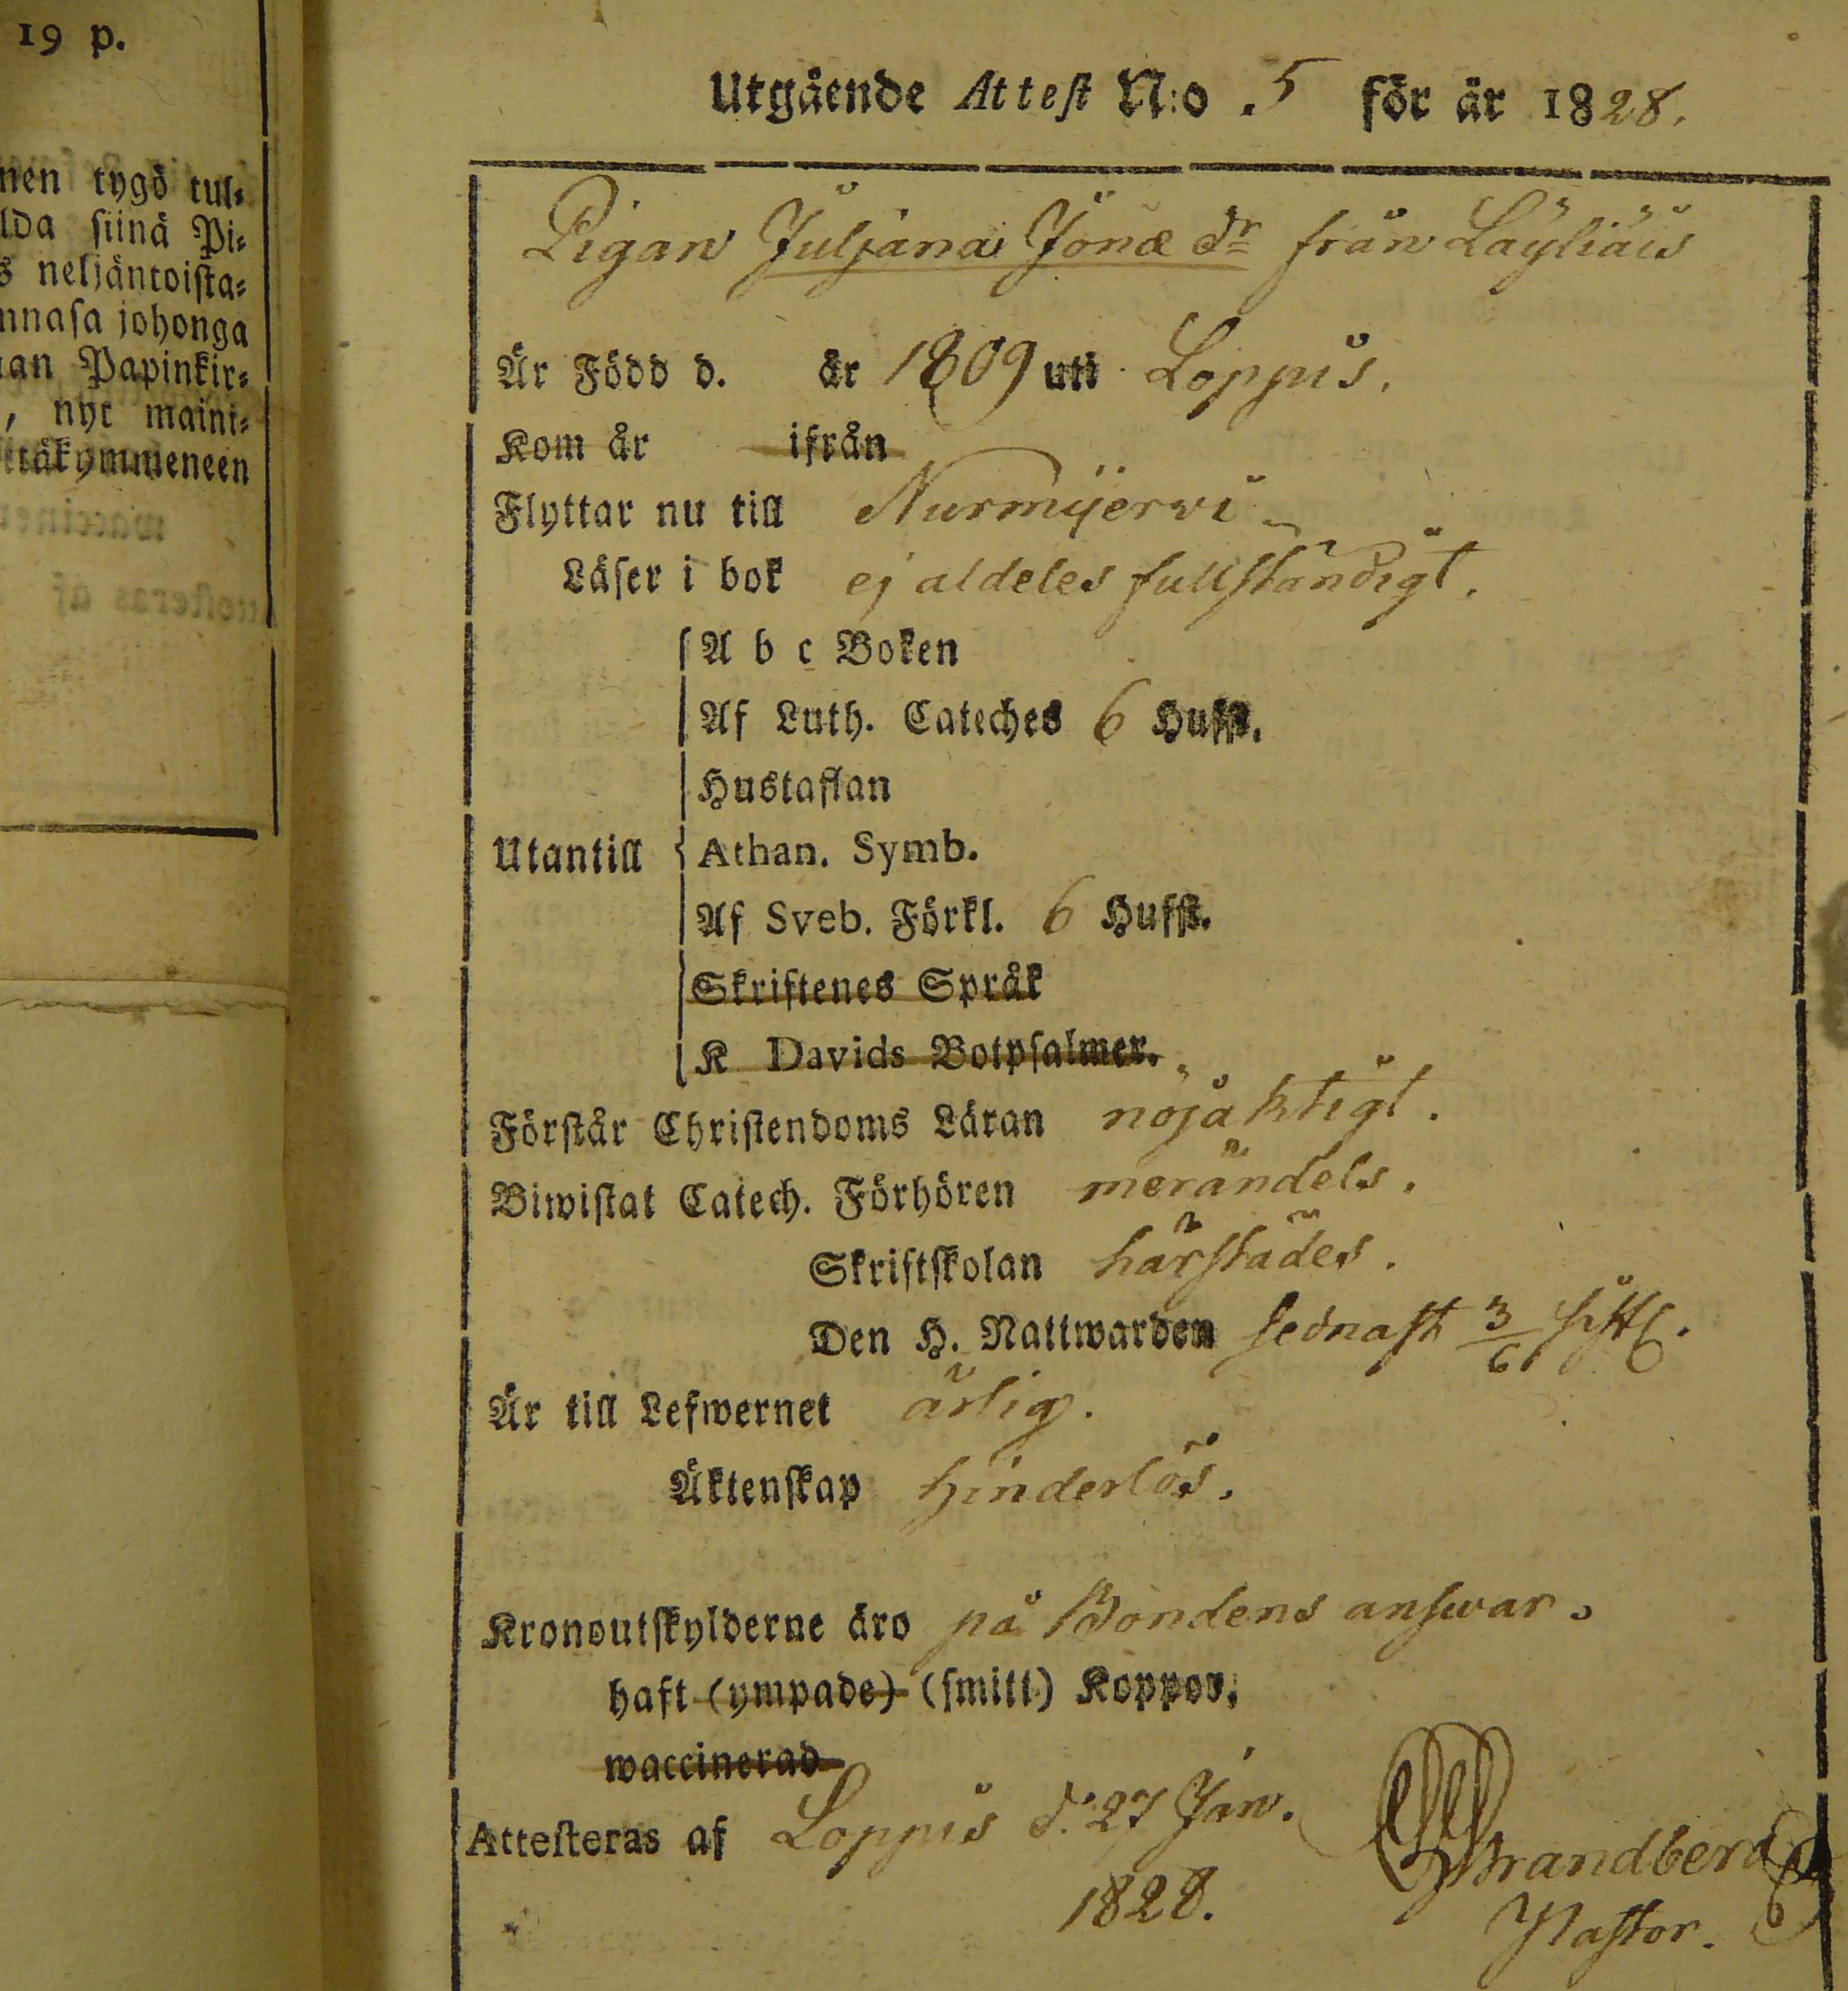 19 p.
nen tygö tul-
lda siinä Pi-
s neljäntoista-
nnasa johonga
an Papinkir-
, nyt maini-
täkymmeneen
Utgående Attest N:o 5 för år 1828.
Pigan Juljana Jonæ dr från Läyliäis
Är Född d. år 1809 uti Loppis.
Kom år ifrån
Flyttar nu till Nurmijervi
Läser i bok ej aldeles fullständigt.
A b c Boken
Af Luth. Cateches 6 Hufst.
Hustaflan
Utantill Athan. Symb.
Af Sveb. Förkl. 6 Hufst.
Skriftenes Språk
K Davids Botpsalmer.
Förstår Christendoms Läran nöjaktigt.
Biwistat Catech. Förhören merändels.
Skriftskolan härstädes.
Den H. Nattwarden sednast 3/6
Är till Lefwernet ärlig.
Äktenskap hinderlös.
Kronoutskylderne äro på Bondens answar.
haft (ympade) (smitt) Koppor,
waccinerad
Attesteras af Loppis d. 27 Jan.
1828.
Strandberg
Pastor.